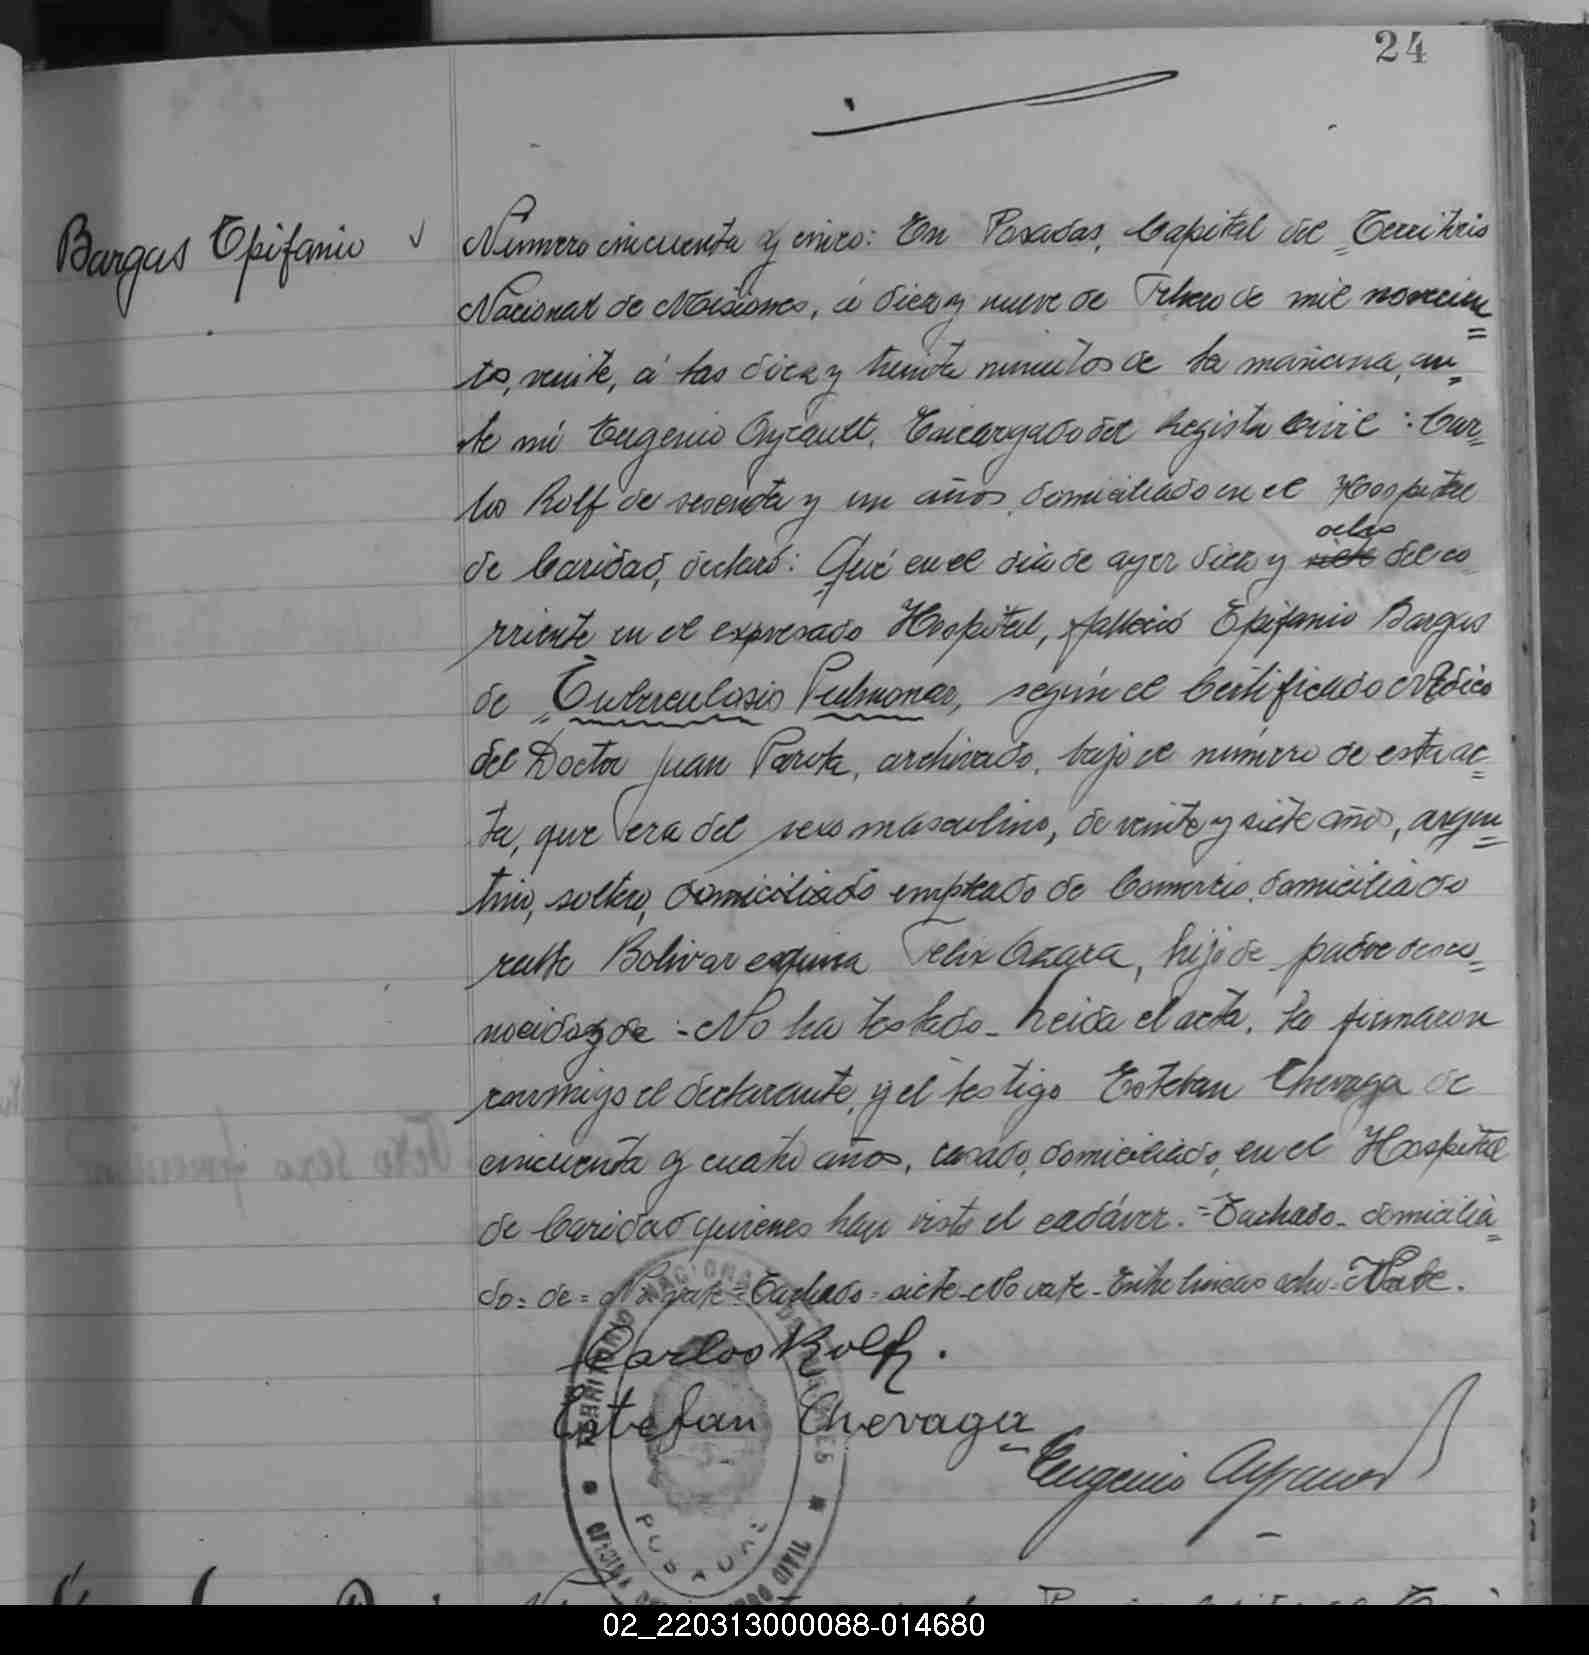 24
Bargas Epifanio
Número cincuenta y cinco: En Posadas, Capital del Territorio
Nacional de Misiones, á diez y nueve de Febrero de mil novecien=
tos, veinte, á las diez y treinta minutos de la mañana, an=
te mi Eugenio Ayrault, Encargado del Registro Civil: Car=
los Rolf de sesenta y un años, domiciliado en el Hospital
de Caridad, declaró: Qué en el dia de ayer diez y siete ocho del co
rriente en el expresado Hospital, falleció Epifanio Bargas
de Tuberculosis Pulmonar, según el Certificado Médico
del Doctor Juan Parola, archivado, bajo el número de esta ac=
ta, que era del sexo masculino, de veinte y siete años, argen=
tino, soltero, domiciliado empleado de Comercio, domiciliado
calle Bolivar esquina Felix Azara, hijo de padre desco=
nocido y de =No ha testado_ Leida el acta, la firmaron
conmigo el declarante, y el testigo Esteban Chevaga de
cincuenta y cuatro años, casado, domiciliado, en el Hospital
de Caridad quienes han visto el cadáver.=Tachado_ domicilia=
do= de= No vate=Tachado=siete_No vate_Entre lineas ocho_Vale.
Carlos Rolf.
Estefan Chevaga
Eugenio Ayrault
TERRITORIO NACIONAL DE MISIONES
POSADAS
02_220313000088-014680